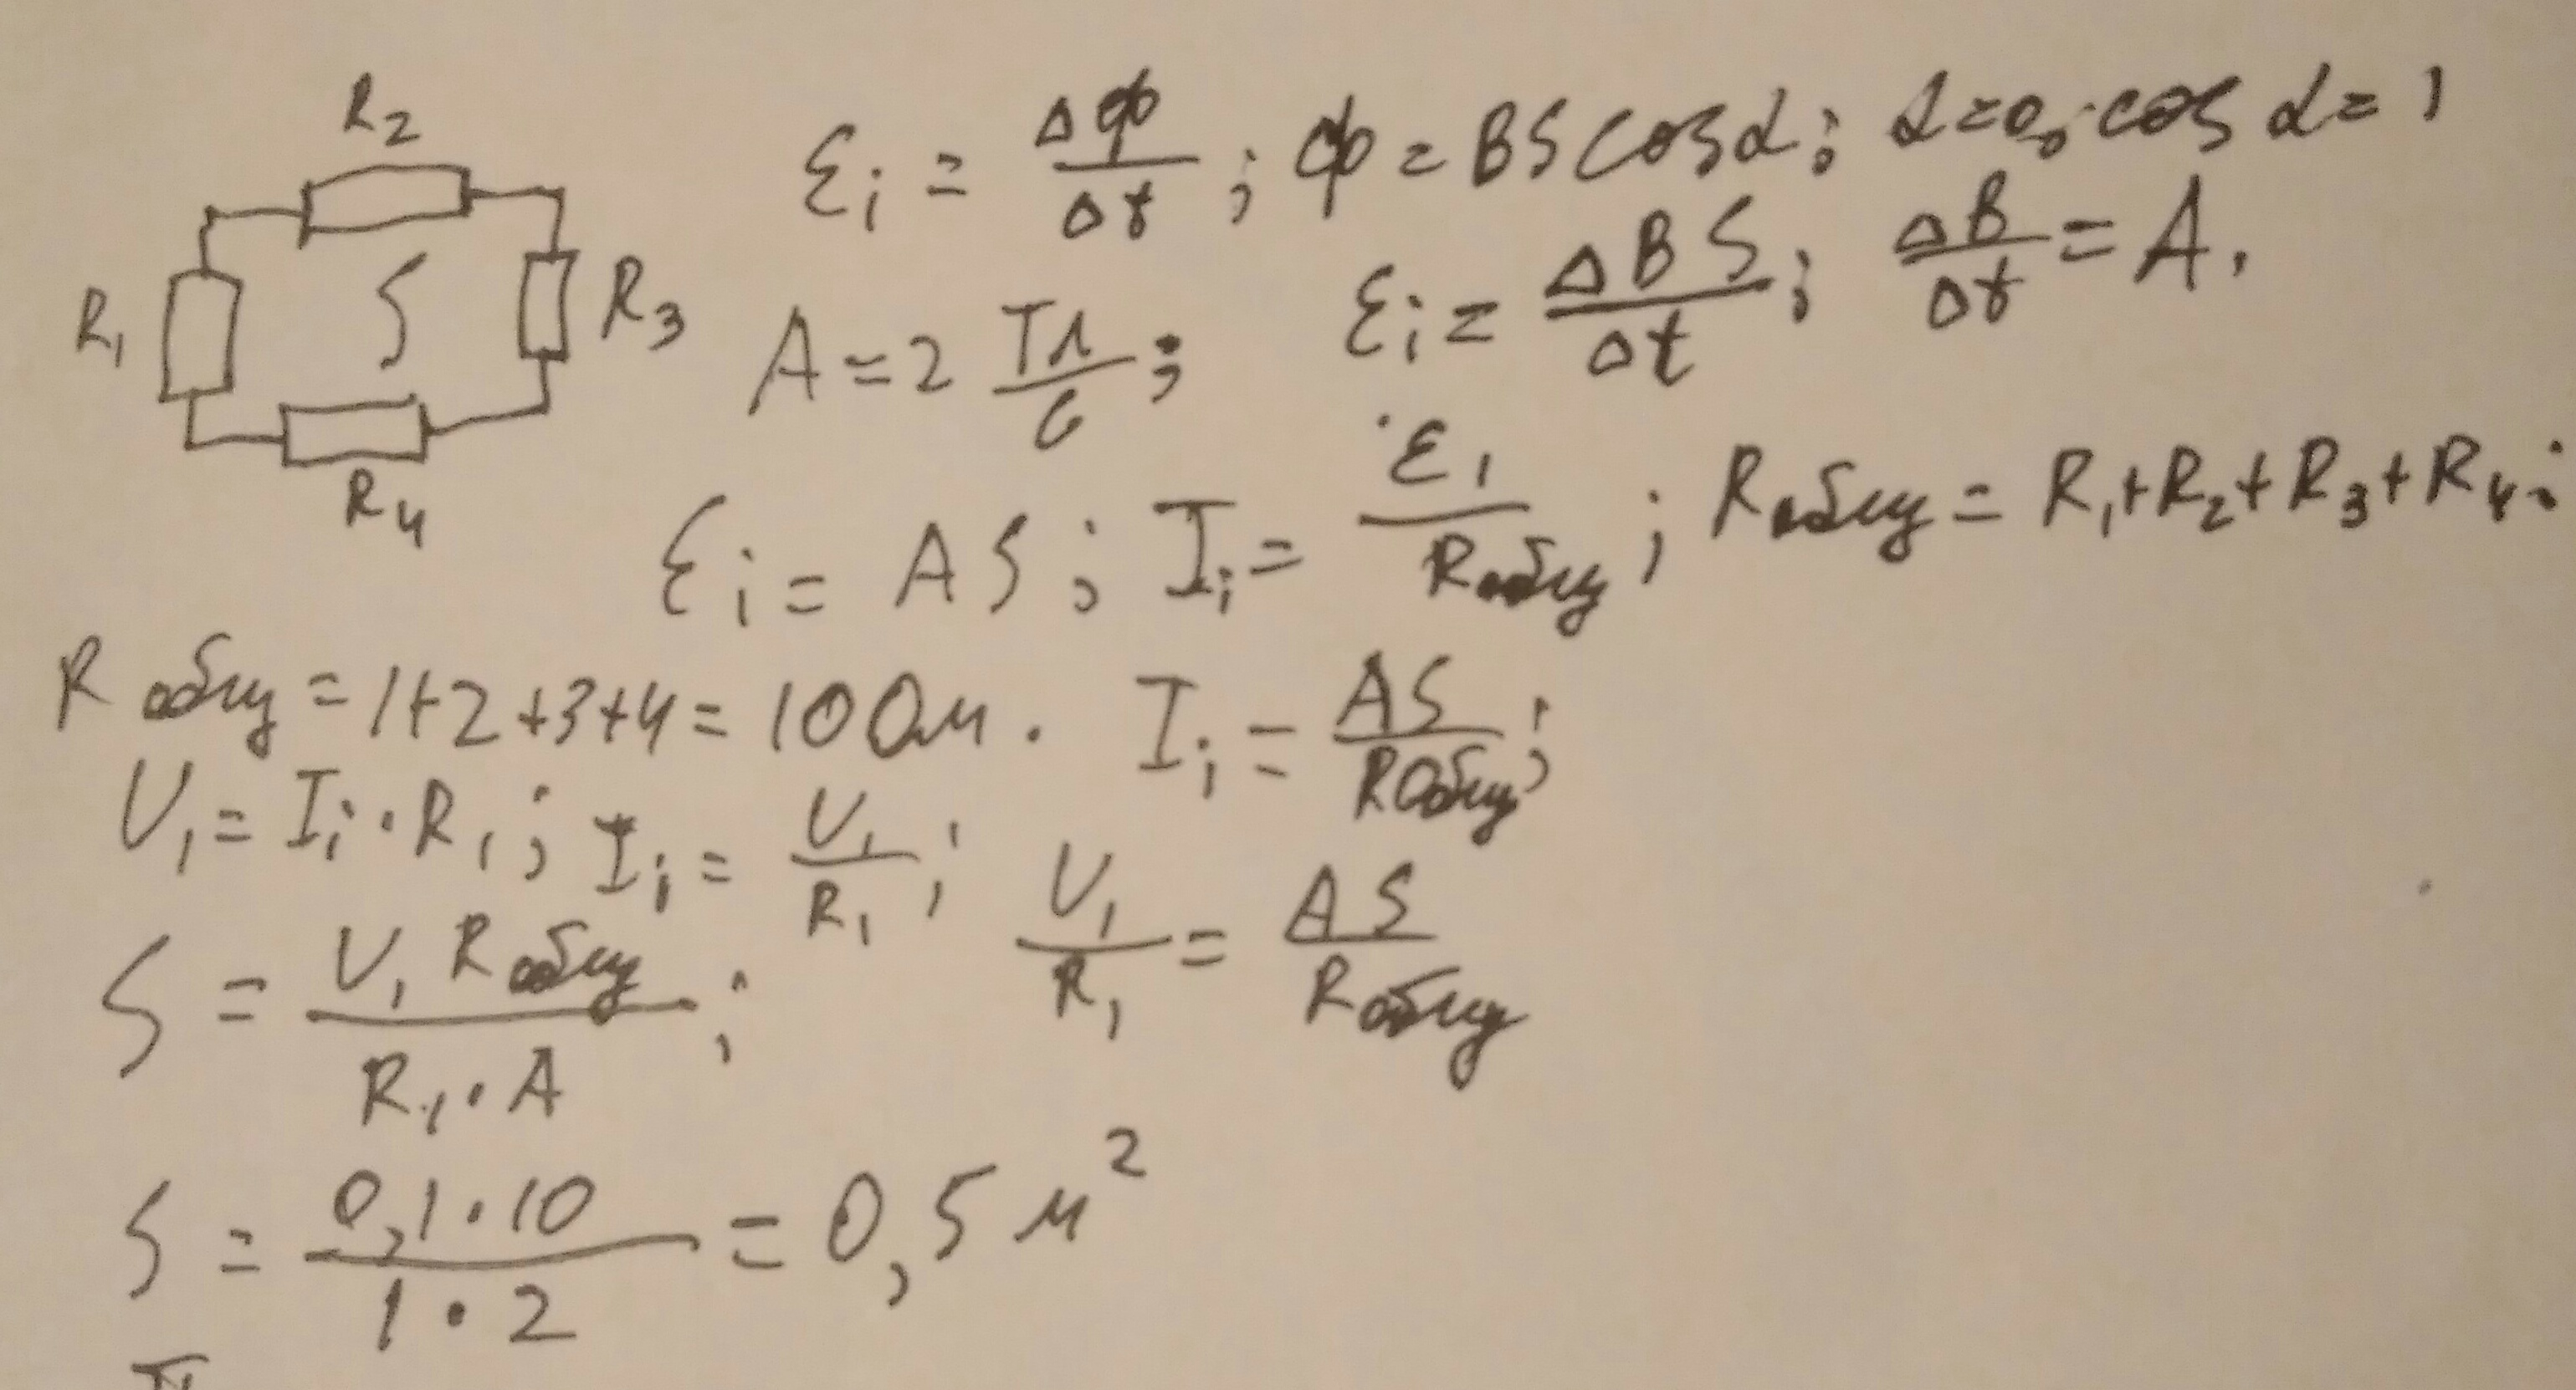 R₂
R₁
S
R₃
R₄
ℰi = ΔΦ/Δt ; Φ = BS cosα ; α=0, cos α = 1
A = 2 Тл/с ; ℰi = ΔBS/Δt ; ΔB/Δt = A.
ℰi = AS ; Ii = ℰi/Rобщ ; Rобщ = R₁+R₂+R₃+R₄ ;
Rобщ = 1+2+3+4 = 10 Ом. Ii = AS/Rобщ ;
U₁ = Ii · R₁ ; Ii = U₁/R₁ ; U₁/R₁ = AS/Rобщ
S = U₁ Rобщ/R₁·A ;
S = 0,1·10/1·2 = 0,5 м²